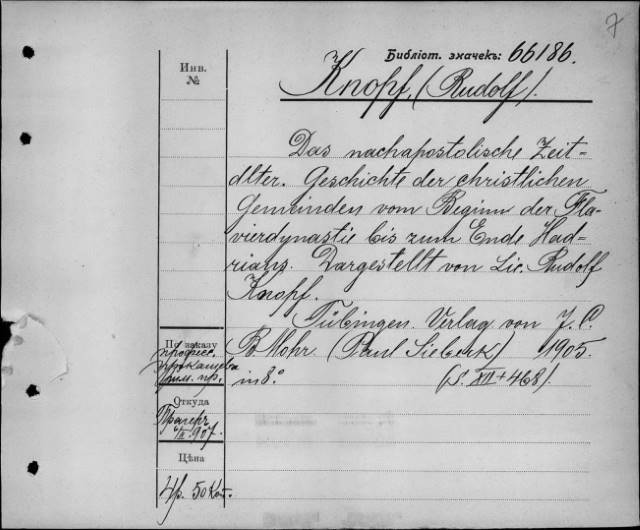 7
Библіот. значекъ: 66186.
Инв.
№
Knopf, (Rudolf).
Das nachapostolische Zeit-
alter. Geschichte der christlichen
Gemeinden vom Beginn der Fla-
vierdynastie bis zum Ende Had-
rians. Dargestellt von Lic. Rudolf
Knopf.
Tübingen. Verlag von J. C.
B. Mohr (Paul Siebeck) 1905.
in 8.° (S. XII + 468).
По заказу
професс.
пр.
Откуда
907.
Цѣна
4р. 50 коп.